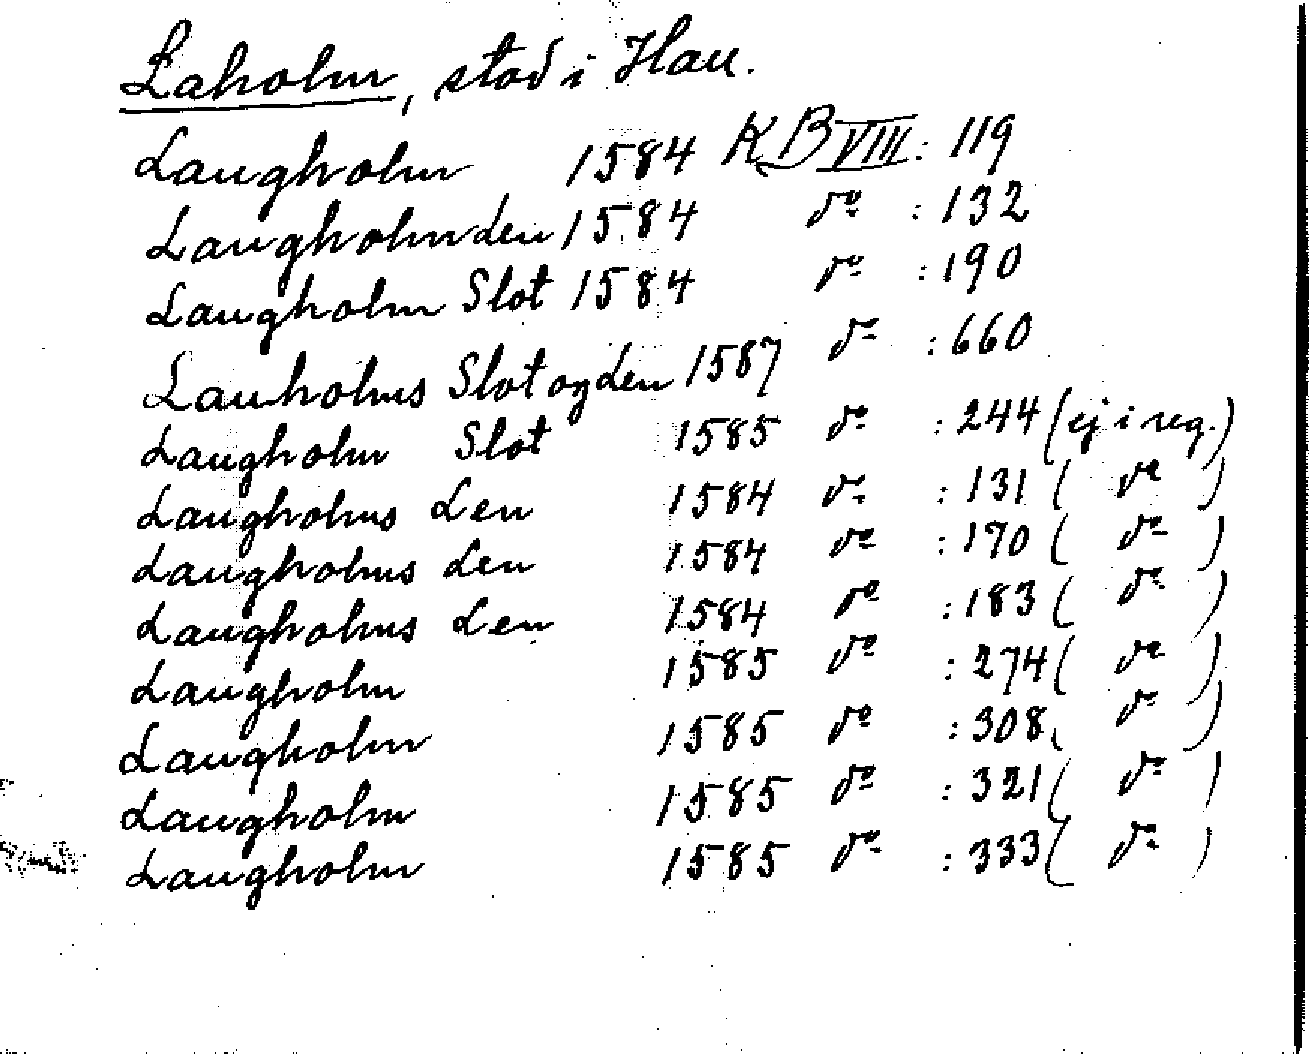 Laholm, stad i Hall.
Laugholm 1584 KB VIII: 119
Laugholm Len 1584 do : 132
Laugholm Slot 1584 do : 190
Lauholms Slot og Len 1587 do : 660
Laugholm Slot 1585 do : 244 (ej i reg.)
Laugholms Len 1584 do : 131 ( do )
Laugholms Len 1584 do : 170 ( do )
Laugholms Len 1584 do : 183 ( do )
Laugholm 1585 do : 274 ( do )
Laugholm 1585 do : 308 ( do )
Laugholm 1585 do : 321 ( do )
Laugholm 1585 do : 333 ( do )